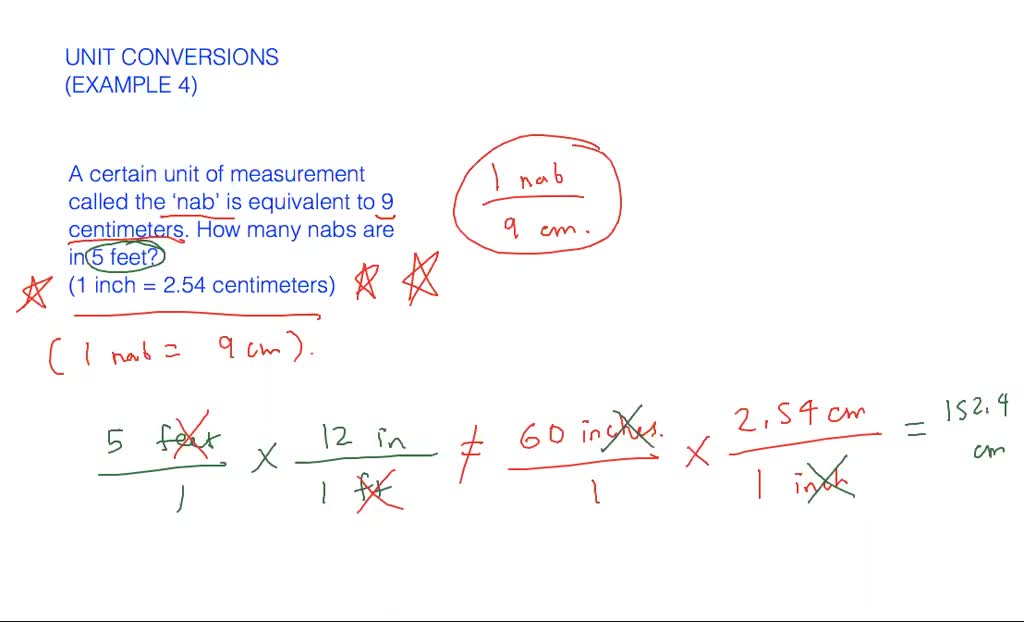 UNIT CONVERSIONS
(EXAMPLE 4)
A certain unit of measurement
called the ‘nab’ is equivalent to 9
centimeters. How many nabs are
in 5 feet?
(1 inch = 2.54 centimeters)
1 nab
9 cm.
(1 nab = 9 cm).
5 feet × 12 in = 60 inches. × 2.54 cm = 152.4
1 1 ft 1 1 inch cm